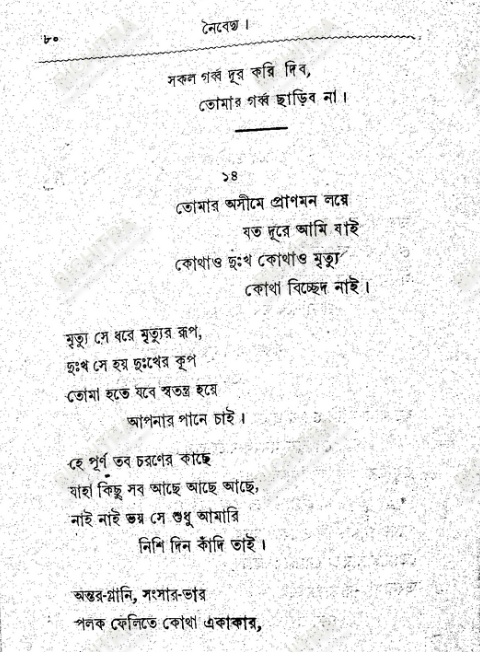 ৮০
নৈবেদ্য।
সকল গর্ব্ব দূর করি দিব,
তোমার গর্ব্ব ছাড়িব না।
১৪
তোমার অসীমে প্রাণমন লয়ে
যত দূরে আমি যাই
কোথাও দুঃখ কোথাও মৃত্যু
কোথা বিচ্ছেদ নাই।
মৃত্যু সে ধরে মৃত্যুর রূপ,
দুঃখ সে হয় দুঃখের কূপ
তোমা হতে যবে স্বতন্ত্র হয়ে
আপনার পানে চাই।
হে পূর্ণ তব চরণের কাছে
যাহা কিছু সব আছে আছে আছে,
নাই নাই ভয় সে শুধু আমারি
নিশি দিন কাঁদি তাই।
অন্তর-গ্লানি, সংসার-ভার
পলক ফেলিতে কোথা একাকার,